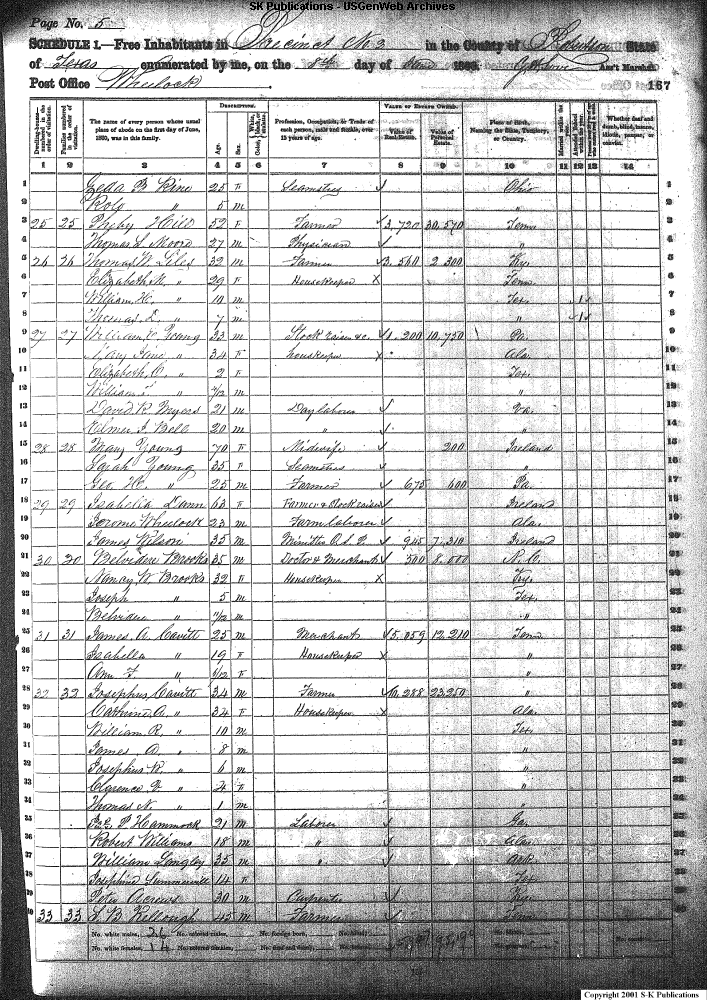 SK Publications - USGenWeb Archives
Page No. 5
SCHEDULE 1.—Free Inhabitants in Precinct No 2 in the County of Robertson State
of Texas enumerated by me, on the 8th day of June 1860. Ass't Marshal.
Post Office Wheelock 167
DESCRIPTION. VALUE OF ESTATE OWNED.
Dwelling-houses— numbered in the order of visitation.
Families numbered in the order of visitation.
The name of every person whose usual place of abode on the first day of June, 1860, was in this family.
Age.
Sex.
Profession, Occupation, or Trade of each person, male and female, over 15 years of age.
Value of Real Estate.
Value of Personal Estate.
Place of Birth, Naming the State, Territory, or Country.
Whether deaf and dumb, blind, insane, idiotic, pauper, or convict.
1 2 3 4 5 6 7 8 9 10 11 12 13 14
1 B 25 F Seamstress Ohio
2 " 5 m "
3 25 25 52 F Farmer 3,720 30,570 Tenn
4 Thomas S. Moore 27 m Physician "
5 26 26 Thomas W. Liles 32 m Farmer 3,560 2 300 Ky.
6 Elizabeth M. " 29 F Housekeeper X Tenn
7 William H. " 10 m Tex. 1
8 Thomas D. " 7 m " 1
9 27 27 William Young 33 m Stock raiser &c. 1,200 10,750 Pa.
10 Mary Jane " 34 F Housekeeper X Ala.
11 Elizabeth A. " 2 F Tex.
12 William " /12 m "
13 David R. Myers 21 m Day laborer Va.
14 Bell 20 m " "
15 28 28 Mary Young 70 F Midwife 200 Ireland
16 Sarah Young 35 F Seamstress "
17 Geo. H. " 25 m Farmer 675 600 Pa.
18 29 29 Isabella Dunn 63 F Farmer & Stock raiser Ireland
19 Jerome Wheelock 23 m Farm laborer Ala.
20 James Wilson 35 m Minister O.S.P. 945 7,310 Ireland
21 30 30 Belvidere Brooks 35 m Doctor & Merchant 500 8,000 N.C.
22 Nancy W. Brooks 32 F Housekeeper X Ky.
23 Joseph " 5 m Tex.
24 Belvidere " 11/12 m "
25 31 31 James A. Cavitt 25 m Merchant 5,059 12,210 Tenn
26 Isabella " 19 F Housekeeper X "
27 Ann F. " /12 F "
28 32 32 Josephus Cavitt 34 m Farmer 10,288 23,250 "
29 Catherine A. " 34 F Housekeeper X Ala.
30 William R. " 10 m Tex.
31 James A. " 8 m "
32 Josephus R. " 6 m "
33 Clarence " 4 F "
34 Thomas N. " 1 m "
35 P. Hammock 21 m Laborer Ga.
36 Robert Williams 18 m " Ala.
37 William Langley 35 m " Ark.
38 Josephine Summerville 14 F Tex.
39 Peter Acrews 30 m Carpenter Ky.
40 33 33 B. Kellough 45 m Farmer Tenn
No. white males, 26 No. colored males, No. foreign born, No. blind,
No. white females, 14 No. colored females, No. deaf and dumb,
Copyright 2001 S-K Publications